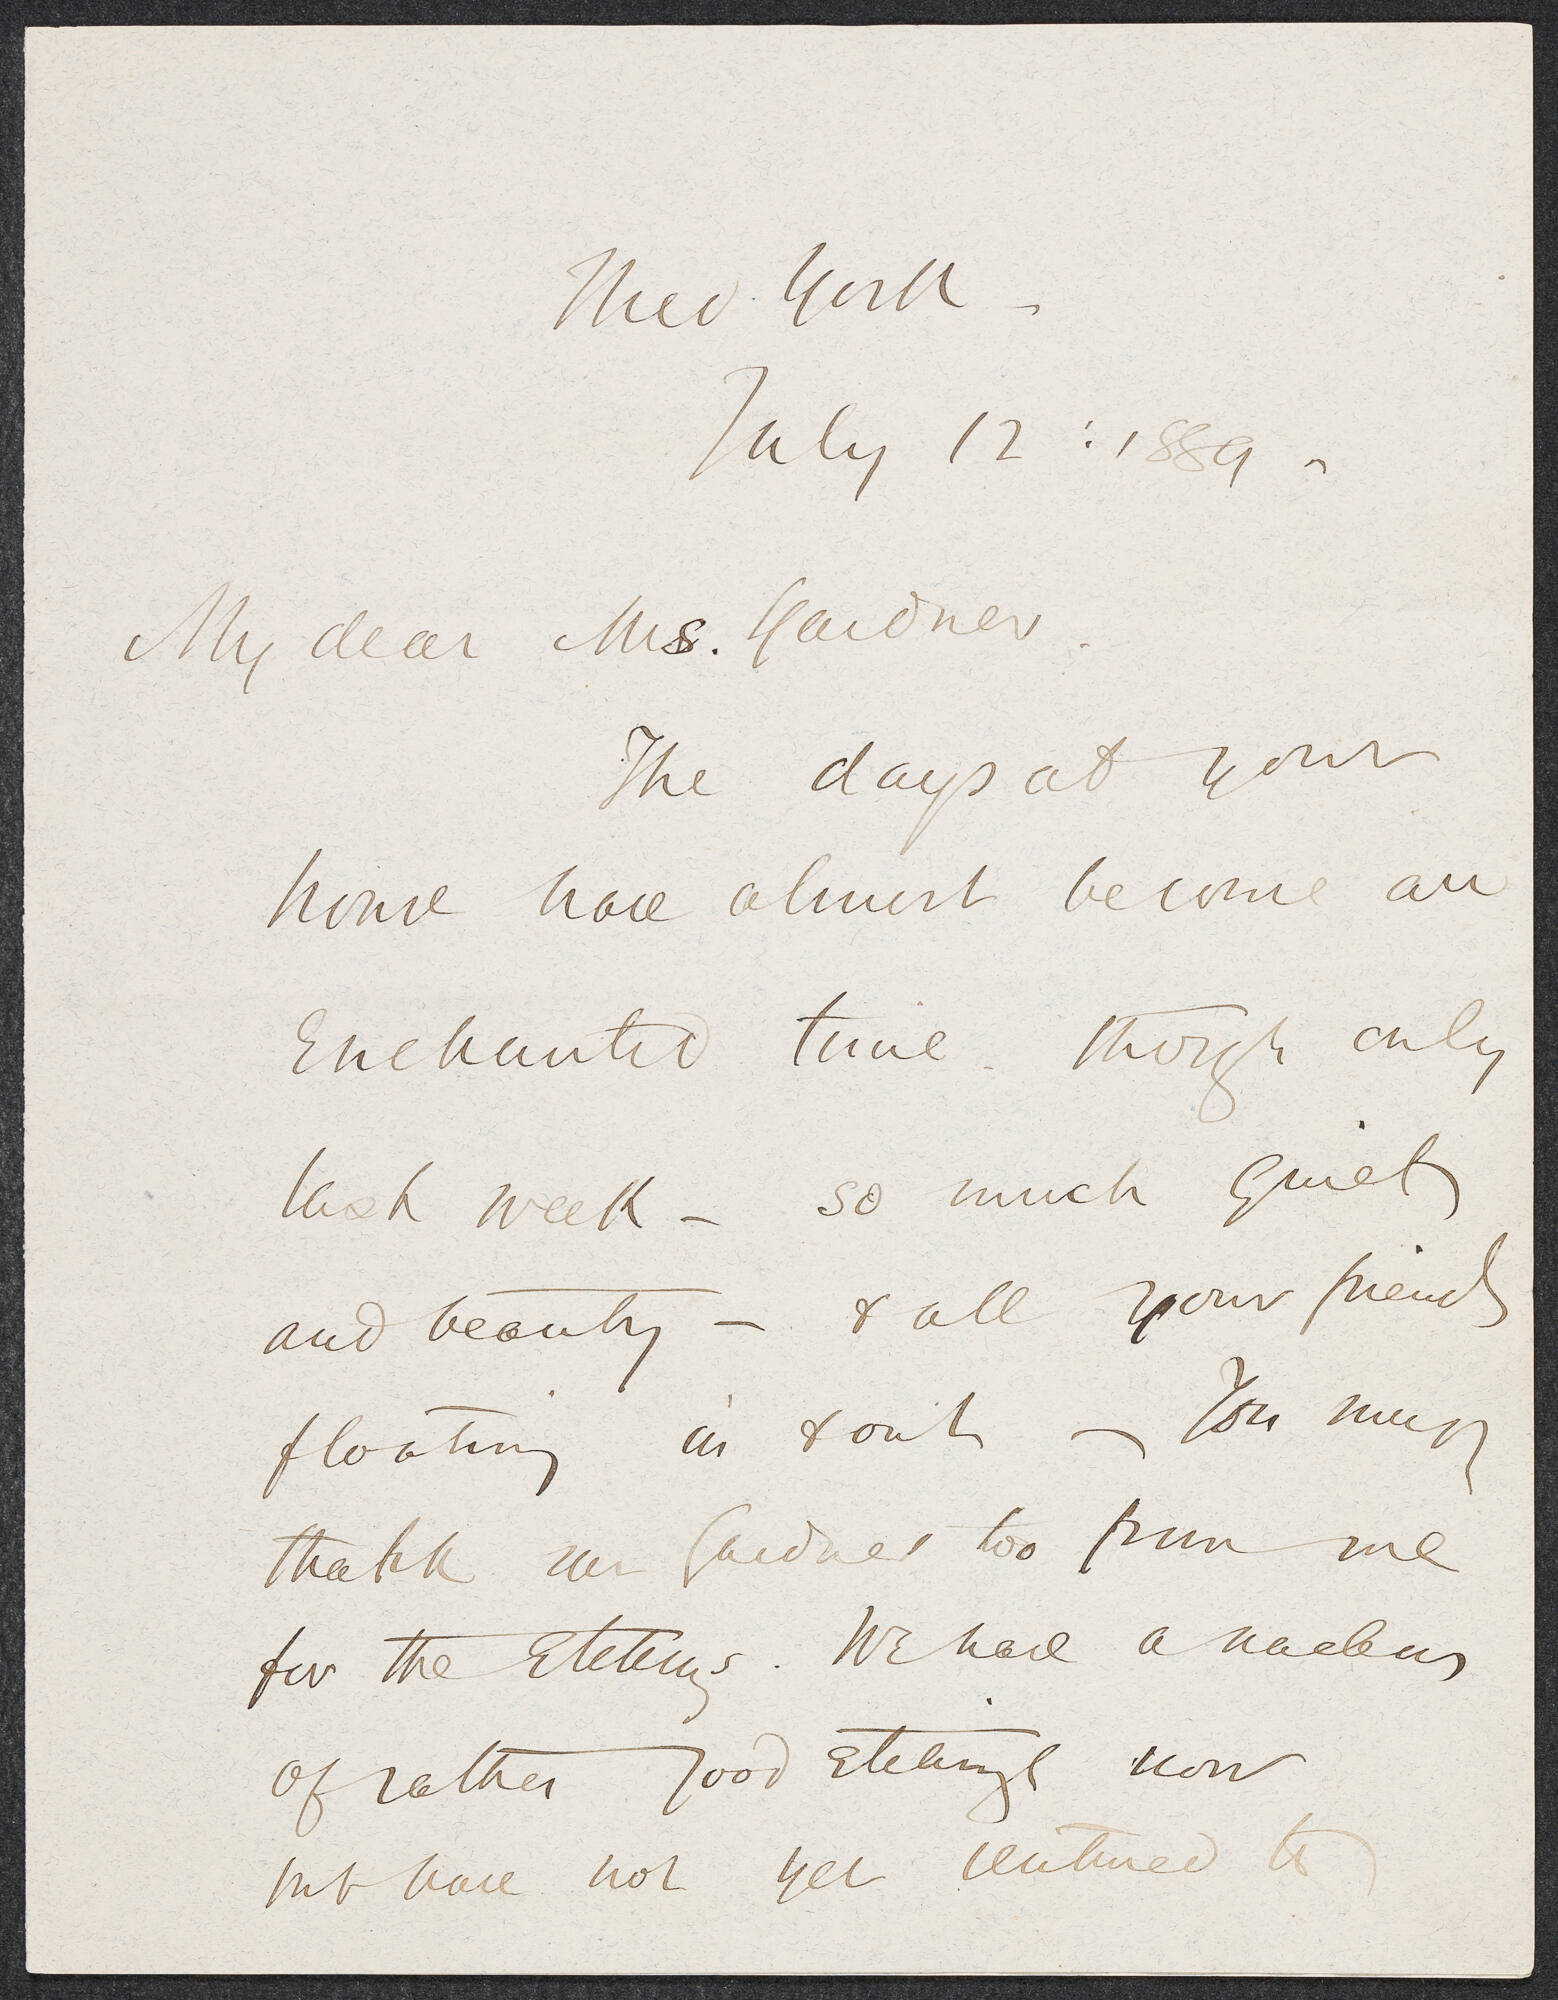 New York –
July 12 : 1889 –
My dear Mrs. Gardner.
The days at your
house have almost become an
Enchanted time. though only
last week – so much quiet
and beauty – & all your friends
floating in & out – You may
thank mr Gardner too from me
for the Etchings. We have a nucleus
of rather good Etchings now
but have not yet ventured to